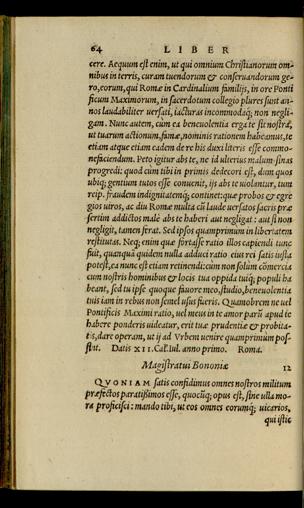 64 LIBER
cere. Aequum est enim, ut qui omnium Christianorum om-
nibus in terris, curam tuendorum & conseruandorum ge-
ro, eorum, qui Romae in Cardinalium familijs, in ore Ponti
ficum Maximorum, in sacerdotum collegio plures sunt an-
nos laudabiliter uersati, iacturas incommodaq; non negli-
gam. Nunc autem, cum ea beneuolentia erga te sit nostra,
ut tuarum actionum, famae, nominis rationem habeamus, te
etiam atque etiam eadem de re his duxi literis esse commo-
nefaciendum. Peto igitur abs te, ne id ulterius malum sinas
progredi: quod cum tibi in primis dedecori est, dum quos
ubiq; gentium tutos esse conuenit, ijs abs te uiolantur, tum
reip. fraudem indignitatemq; continet: quae probos & egre
gios uiros, ac diu Romae multa cū laude uersatos sacris prae
sertim addictos male abs te haberi aut negligat: aut si non
negligit, tamen ferat. Sed ipsos quamprimum in libertatem
restituas. Neq; enim quae fortasse ratio illos capiendi tunc
fuit, quanquā quidem nulla adduci ratio eius rei satis iusta
potest, ea nunc est etiam retinendi: cum non solum cōmercia
cum nostris hominibus & locis tua oppida tuiq; populi ha
beant, sed tu ipse quoque fauore meo, studio, beneuolentia
tuis iam in rebus non semel usus fueris. Quamobrem ne uel
Pontificis Maximi ratio, uel meus in te amor parū apud te
habere ponderis uideatur, erit tuae prudentiae & probita-
tis, dare operam, ut ij ad Vrbem uenire quamprimum pos-
sint. Datis XII. Cal. Iul. anno primo. Roma.
Magistratui Bononiae 12
QVONIAM satis confidimus omnes nostros militum
praefectos paratissimos esse, quocūq; opus est, sine ulla mo-
ra proficisci: mando tibi, ut eos omnes eorumq; uicarios,
qui istic